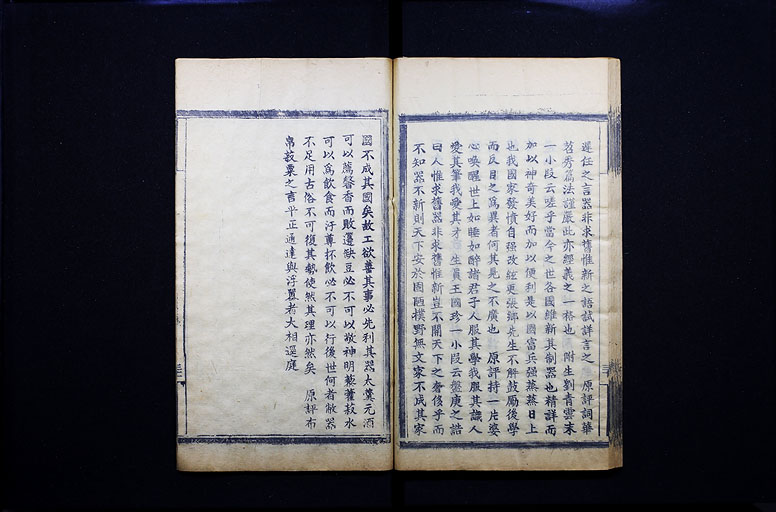 遲任之言器非求舊惟新之語試詳言之 原評詞華
茗秀篇法謹嚴此亦經義之一格也 附生劉青雲末
一小段云嗟乎當今之世各國維新其制器也精詳而
加以神奇美好而加以便利是以國富兵强蒸蒸日上
也我國家發憤自强改絃更張鄉先生不解鼓勵後學
而反目之為異者何其見之不廣也 原評持一片婆
心喚醒世上如睡如醉諸君子人服其學我服其識人
愛其筆我愛其才 生員王國珍一小段云盤庚之誥
曰人惟求舊器非求舊惟新豈不開天下之奢侈乎而
不知器不新則天下安於固陋樸野無文家不成其家
國不成其國矣故工欲善其事必先利其器太羹元酒
可以薦馨香而敗籩缺豆必不可以敬神明藜藿菽水
可以為飲食而汙尊抔飲必不可以行後世何者敝器
不足用古俗不可復其勢使然其理亦然矣 原評布
帛菽粟之言平正通達與浮囂者大相逕庭